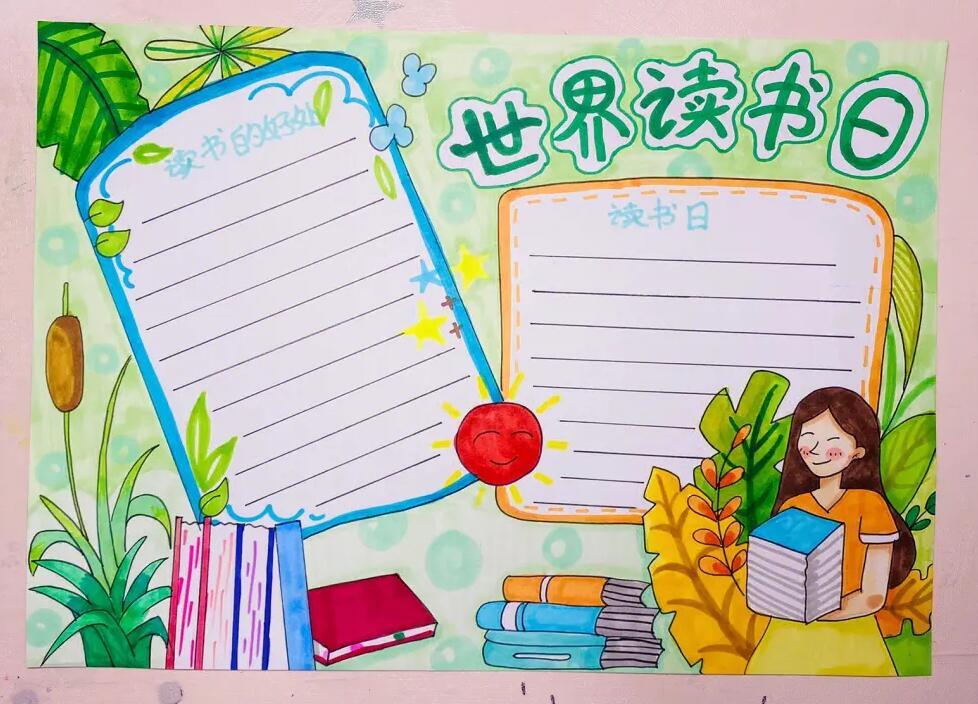 世界读书日
读书的好处
读书日